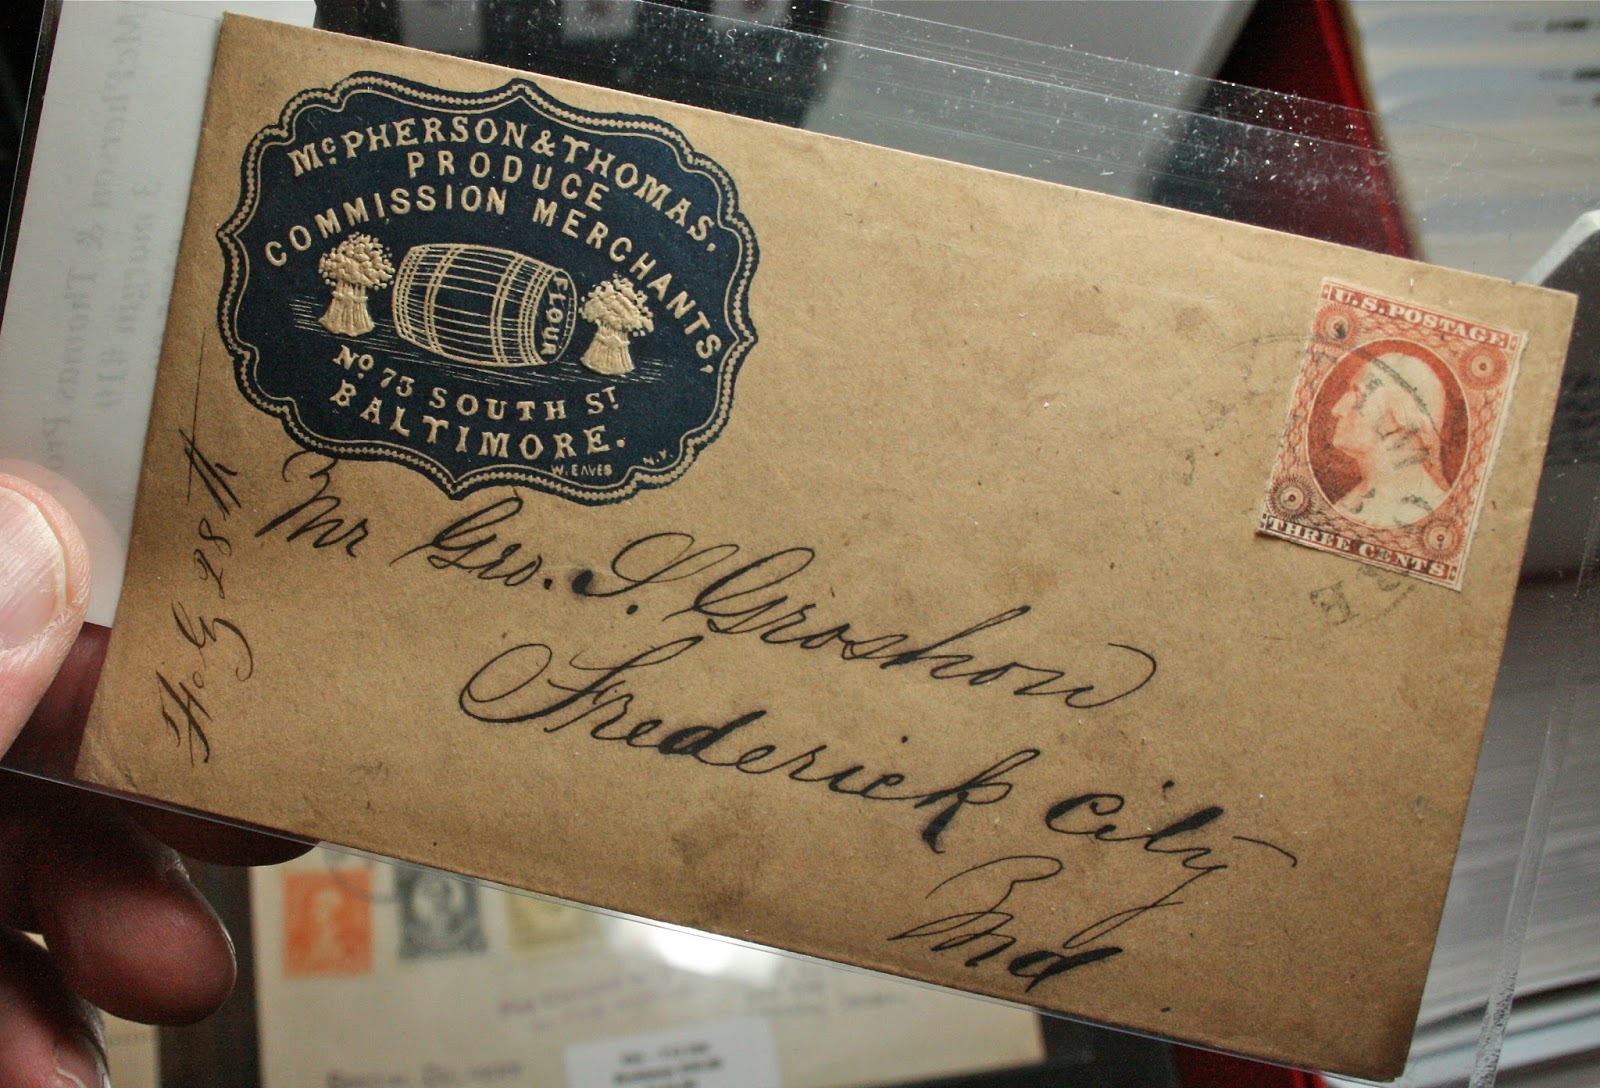 McPHERSON & THOMAS,
PRODUCE
COMMISSION MERCHANTS,
FLOUR
No 73 SOUTH ST.
BALTIMORE.
W. EAVES N.Y.
U.S. POSTAGE
THREE CENTS
Mr Geo. S. Groshon
Frederick City
Md.
28th
McPherson & Thomas